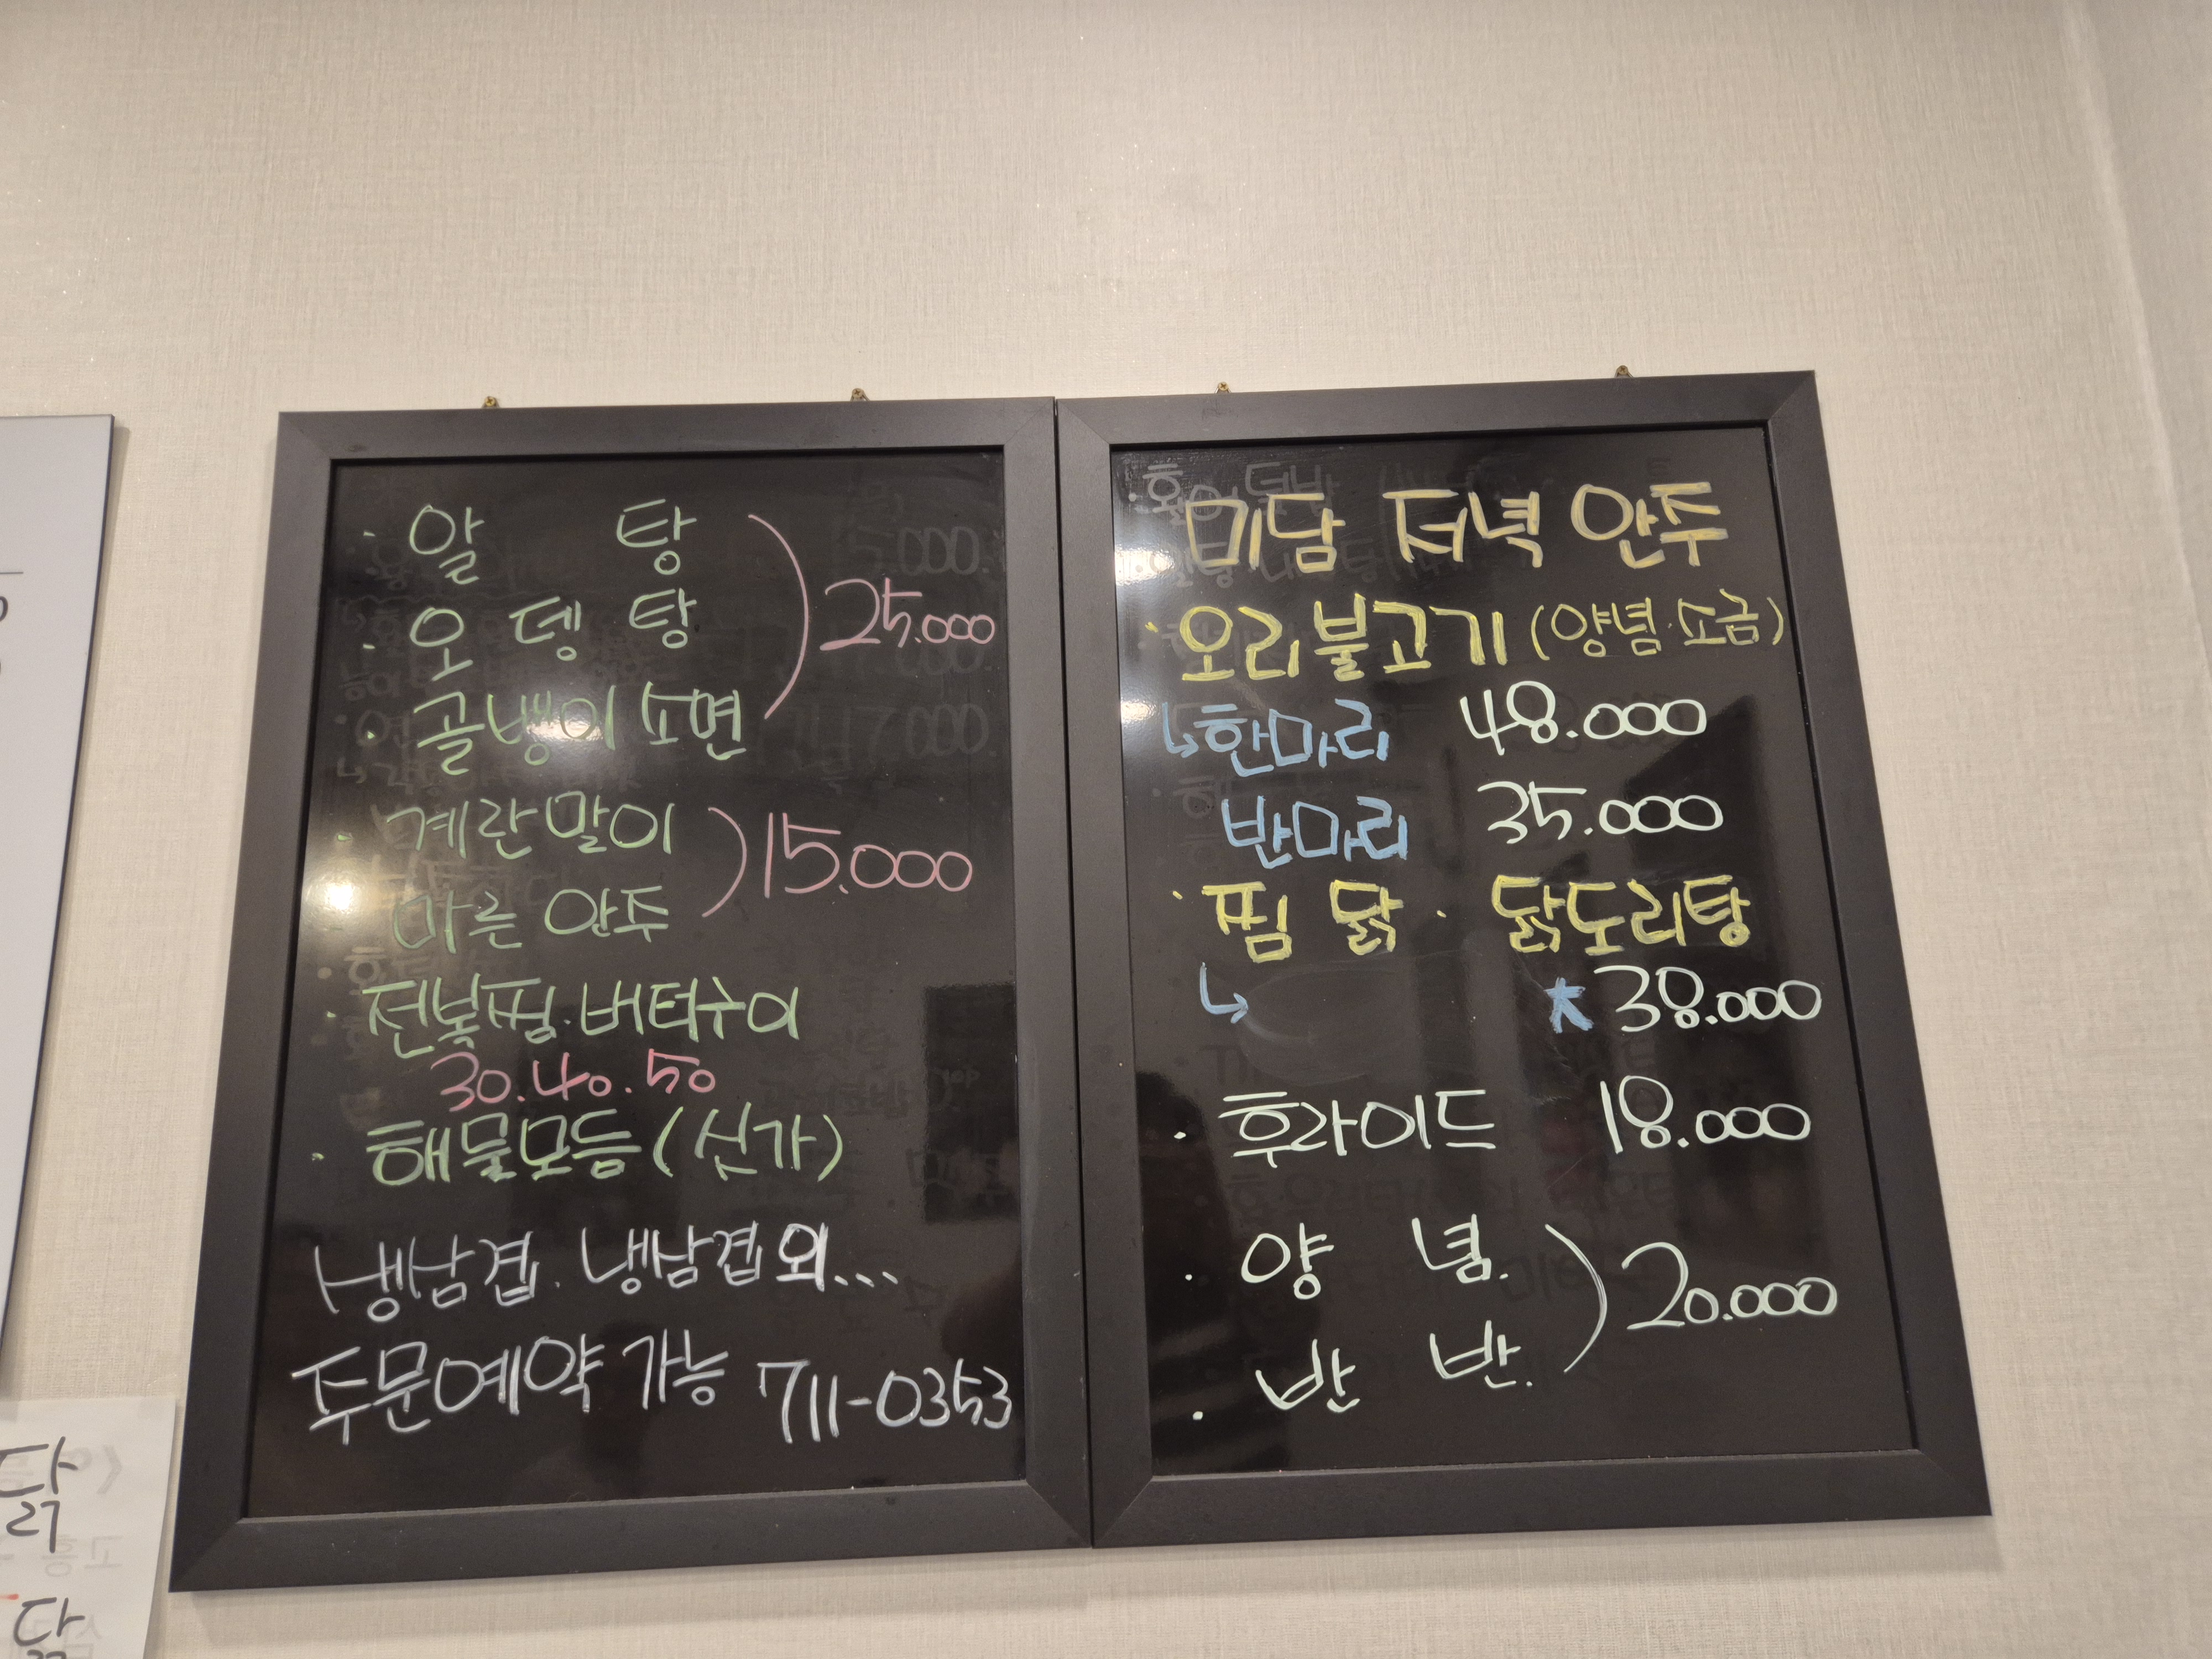 · 알 탕
· 오 뎅 탕 ) 25.000
· 골뱅이 소면
· 계란말이
· 마른 안주 ) 15.000
· 전복찜. 버터구이
30.40.50
· 해물모듬 (싯가)
냉삼겹. 냉삼겹 외...
주문예약 가능 711-0353
미담 저녁 안주
· 오리불고기 (양념·소금)
↳ 한마리 48.000
반마리 35.000
· 찜 닭 · 닭도리탕
↳ ★ 38.000
· 후라이드 18.000
· 양 념. ) 20.000
· 반 반.